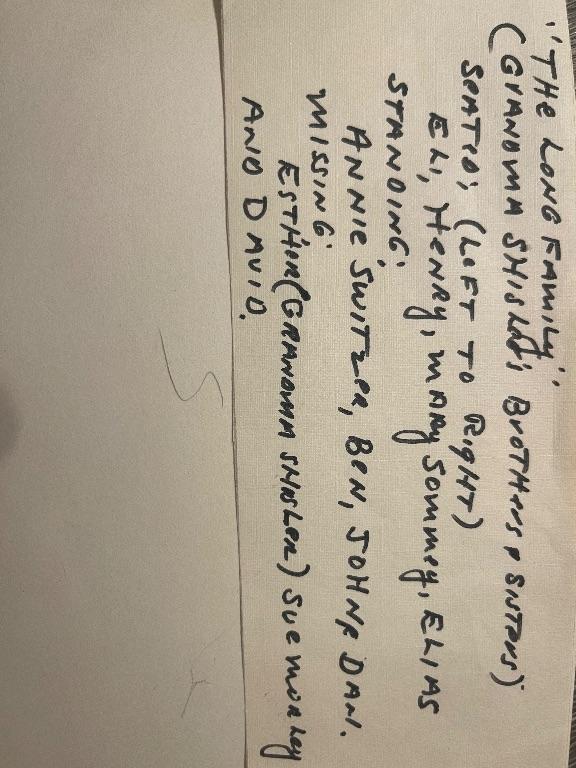 "THE LONG FAMILY".
(GRANDMA SHISLER; BROTHERS & SISTERS)
SEATED; (LEFT TO RIGHT)
ELI, HENRY, MARY SOMMEY, ELIAS
STANDING;
ANNIE SWITZER, BEN, JOHN & DAN.
MISSING;
ESTHER (GRANDMA SHISLER) SUE MORLEY
AND DAVID.